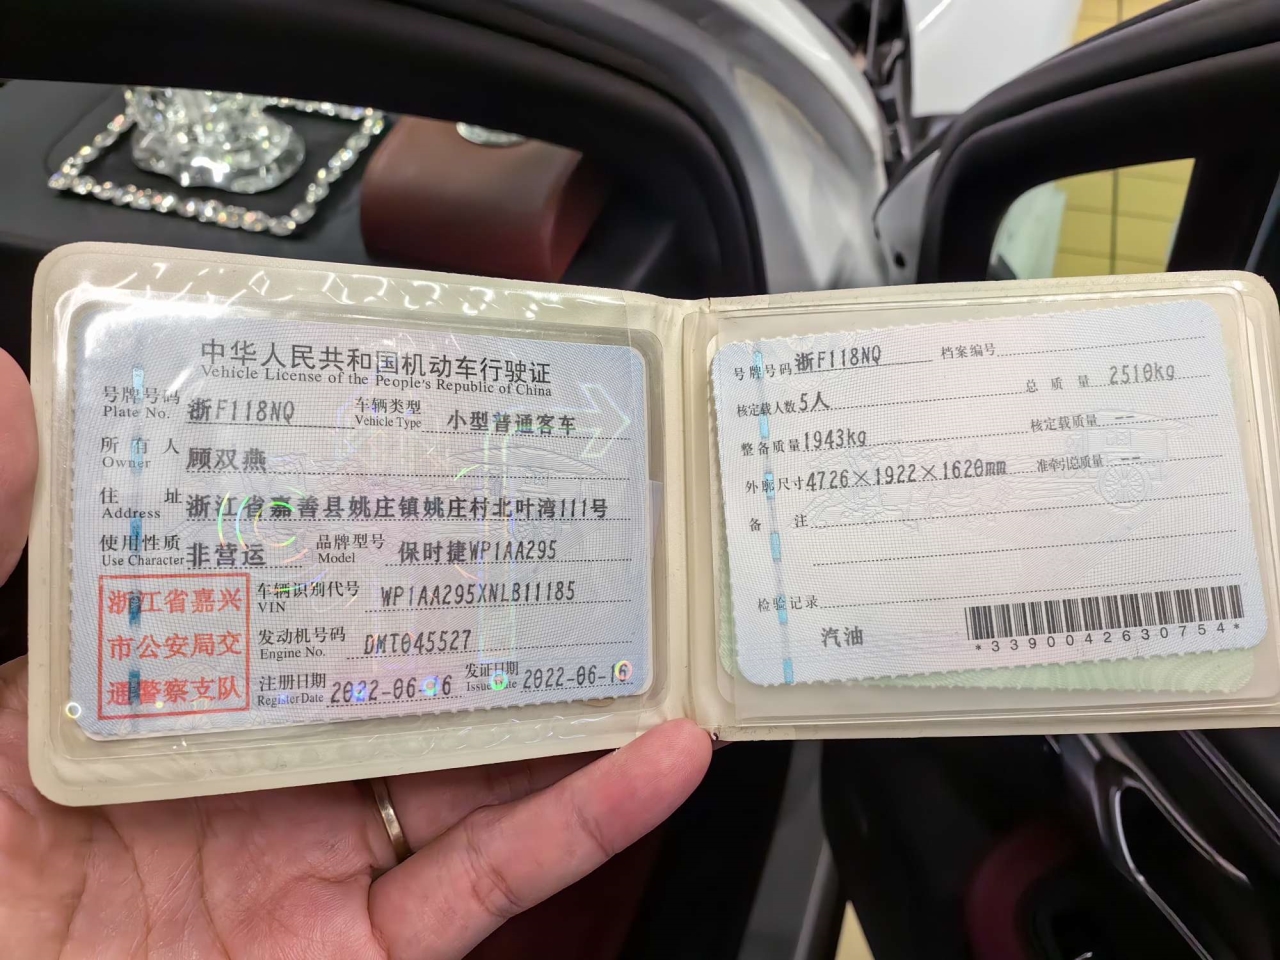 中华人民共和国机动车行驶证
Vehicle License of the People's Republic of China
号牌号码 浙F118NQ 车辆类型 小型普通客车
Plate No. Vehicle Type
所有人 顾双燕
Owner
住址 浙江省嘉善县姚庄镇姚庄村北叶湾111号
Address
使用性质 非营运 品牌型号 保时捷WP1AA295
Use Character Model
浙江省嘉兴
市公安局交
通警察支队
车辆识别代号 WP1AA295XNLB11185
VIN
发动机号码 DMT045527
Engine No.
注册日期 2022-06-16 发证日期 2022-06-16
Register Date Issue Date
号牌号码 浙F118NQ 档案编号
核定载人数 5人 总质量 2510kg
整备质量 1943kg 核定载质量 --
外廓尺寸 4726×1922×1620mm 准牵引总质量 --
备注
检验记录
汽油
*3390042630754*